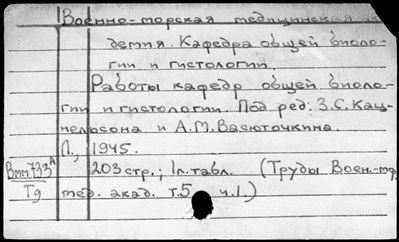 Военно-морская медицинская ака
демия. Кафедра общей биоло-
гии и гистологии.
Работы кафедр общей биоло-
гии и гистологии. Под ред: З.С. Кац-
нельсона и А.М. Васюточкина.
Л., 1945.
Вмт733А 203 стр.; 1л. табл. (Труды Воен.-мор.
Тд мед. акад. т.5 ч.1.)